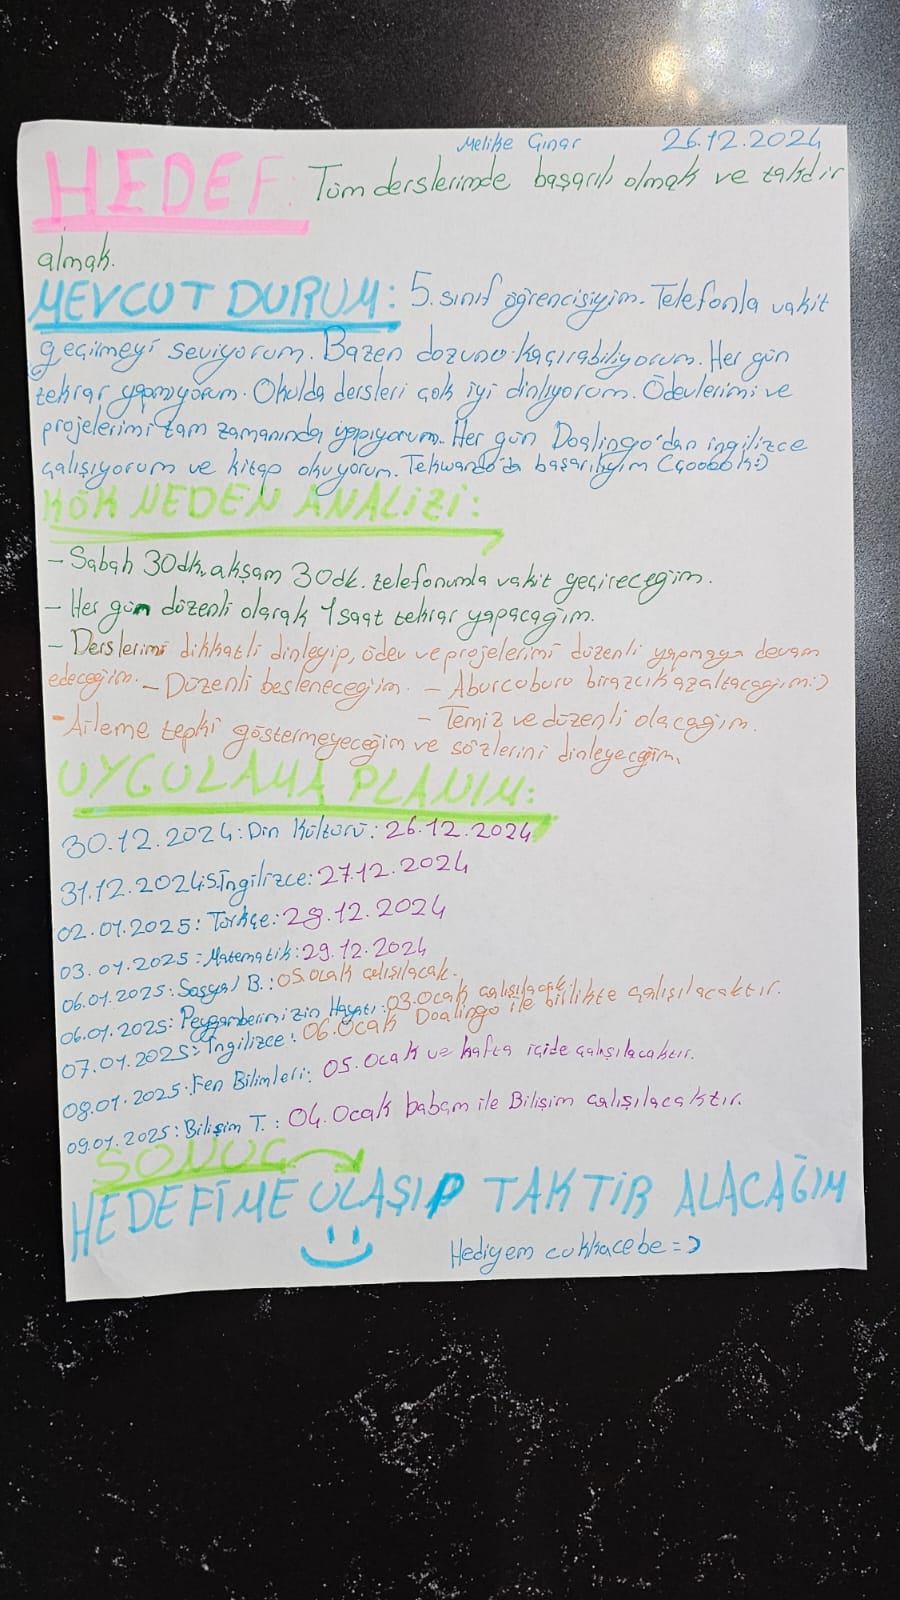 Melike Çınar 26.12.2024
HEDEF: Tüm derslerimde başarılı olmak ve takdir
almak.
MEVCUT DURUM: 5. sınıf öğrencisiyim. Telefonla vakit
geçilmeyi seviyorum. Bazen dozunu kaçırabiliyorum. Her gün
tekrar yapmıyorum. Okulda dersleri çok iyi dinliyorum. Ödevlerimi ve
projelerimi tam zamanında yapıyorum. Her gün Doalingo'dan ingilizce
çalışıyorum ve kitap okuyorum. Tekwando'da başarılıyım (çooookk:)
KÖK NEDEN ANALİZİ:
- Sabah 30dk. akşam 30dk. telefonumla vakit geçireceğim.
- Her gün düzenli olarak 1 saat tekrar yapacağım.
- Derslerimi dikkatli dinleyip, ödev ve projelerimi düzenli yapmaya devam
edeceğim. - Düzenli besleneceğim. - Aburcuburu birazcık azaltacağım:)
- Aileme tepki göstermeyeceğim ve sözlerini dinleyeceğim. - Temiz ve düzenli olacağım.
UYGULAMA PLANIM:
30.12.2024: Din Kültürü: 26.12.2024
31.12.2024: S.İngilizce: 27.12.2024
02.01.2025: Türkçe: 28.12.2024
03.01.2025: Matematik: 29.12.2024
06.01.2025: Sosyal B.: 05.Ocak çalışılacak.
06.01.2025: Peygamberimizin Hayatı: 03.Ocak çalışılacak.
07.01.2025: İngilizce: 06.Ocak Doalingo ile birlikte çalışılacaktır.
08.01.2025: Fen Bilimleri: 05.Ocak ve hafta içide çalışılacaktır.
09.01.2025: Bilişim T.: 04.Ocak babam ile Bilişim çalışılacaktır.
SONUÇ
HEDEFİME ULAŞIP TAKTİR ALACAĞIM
Hediyem cukkacebe =)